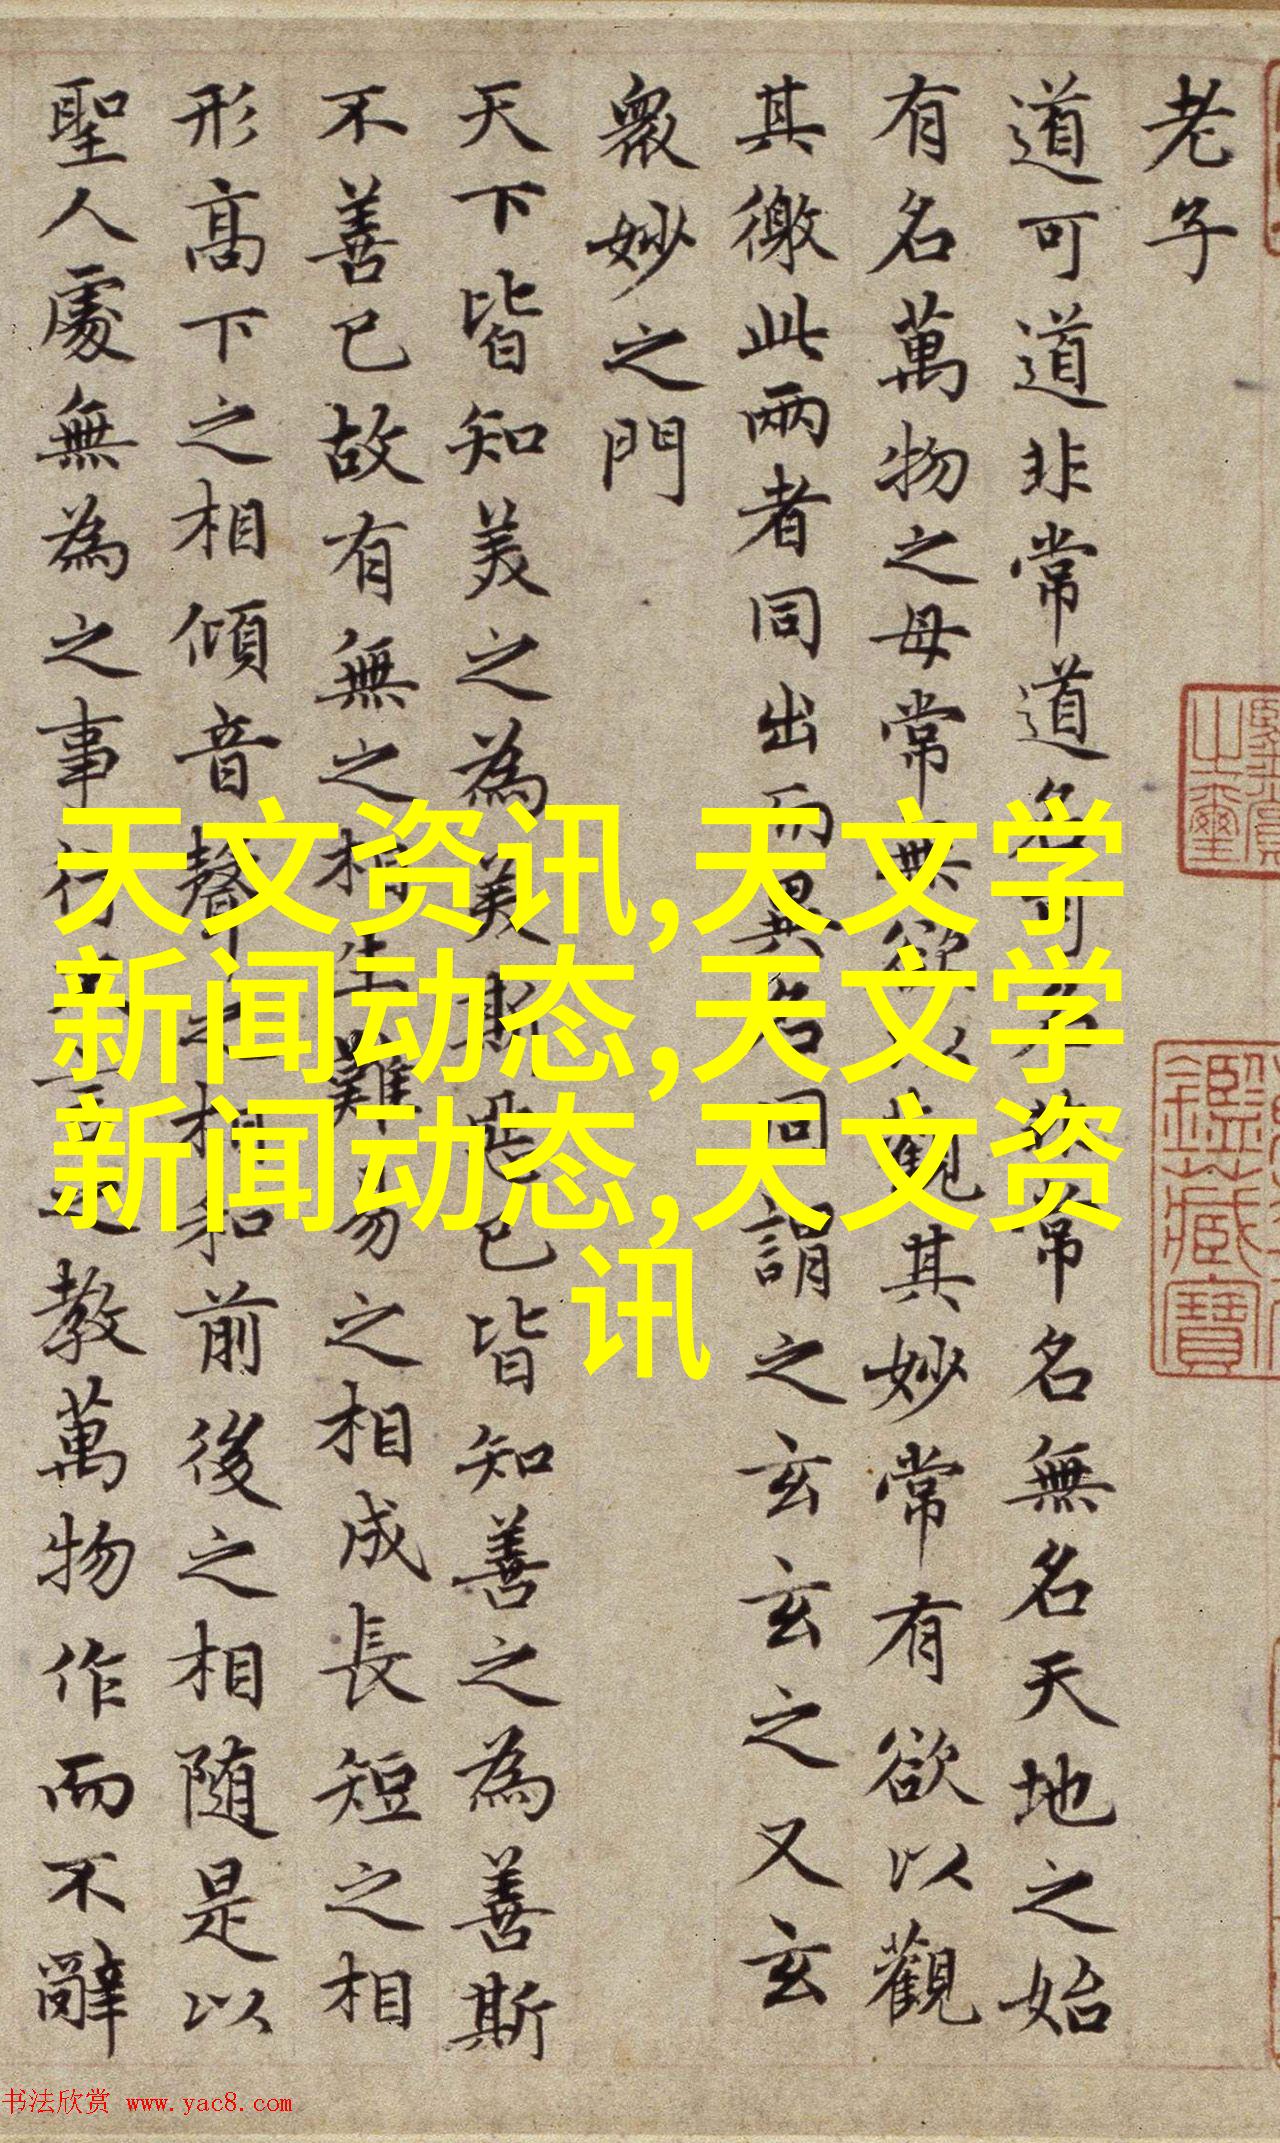 老子
道可道非常道名可名非常名無名天地之始
有名萬物之母常無欲以觀其妙常有欲以觀
其徼此兩者同出而異名同謂之玄玄之又玄
衆妙之門
天下皆知美之為美斯惡已皆知善之為善斯
不善已故有無之相生難易之相成長短之相
形高下之相傾音聲之相和前後之相随是以
聖人處無為之事行不言之教萬物作而不辭
天文资讯,天文学
新闻动态,天文学
新闻动态,天文资
讯
鑑藏寶
书法欣赏 www.yac8.com